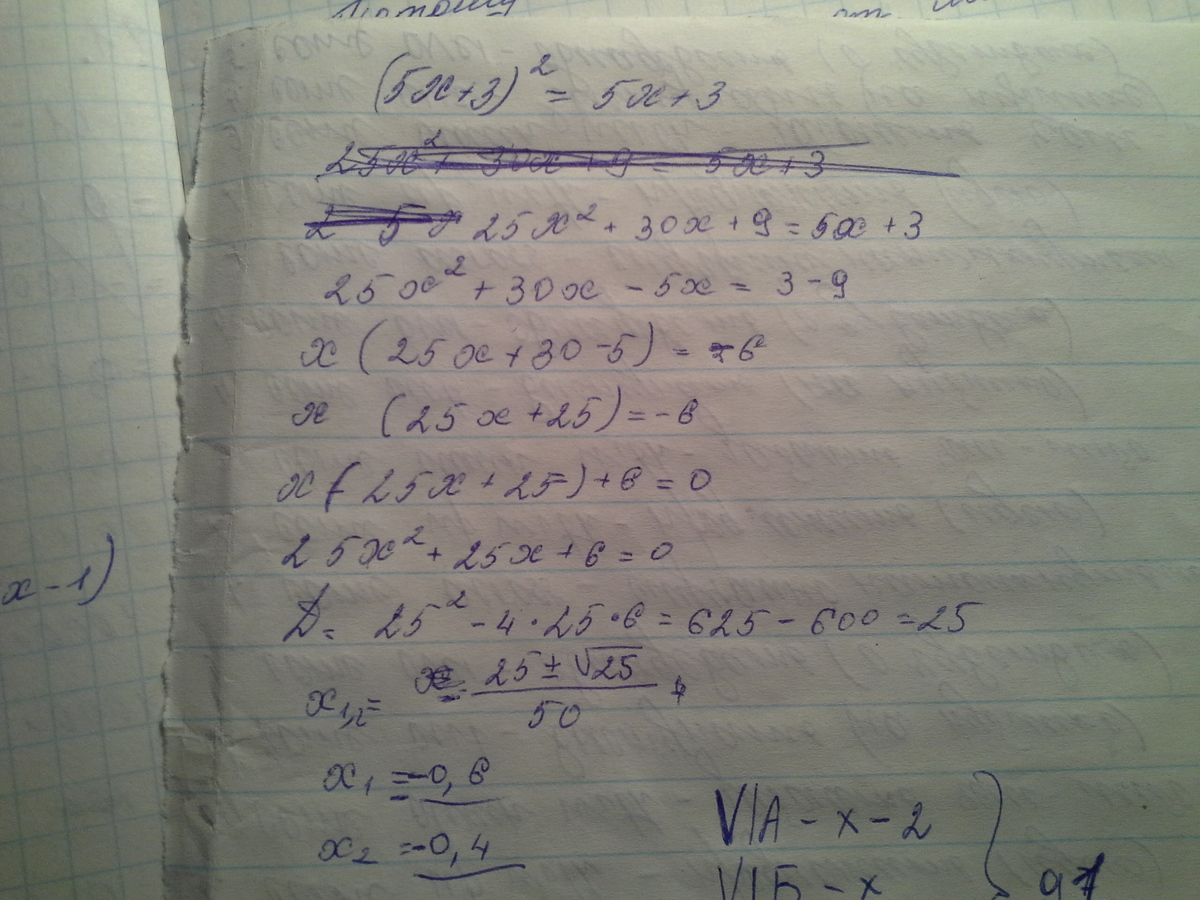 (5x+3)² = 5x+3
25x²+ 30x+9 = 5x+3
2 5 x 25x² + 30x + 9 = 5x + 3
25x² + 30x - 5x = 3 - 9
x (25x+30-5) = -6
x (25x+25) = -6
x(25x + 25) + 6 = 0
25x² + 25x + 6 = 0
D = 25² - 4·25·6 = 625 - 600 = 25
x₁,₂ = 25 ± √25 / 50
x₁ = -0,6
x₂ = -0,4
x - 1)
VIA - x - 2
VIБ - x
} 91